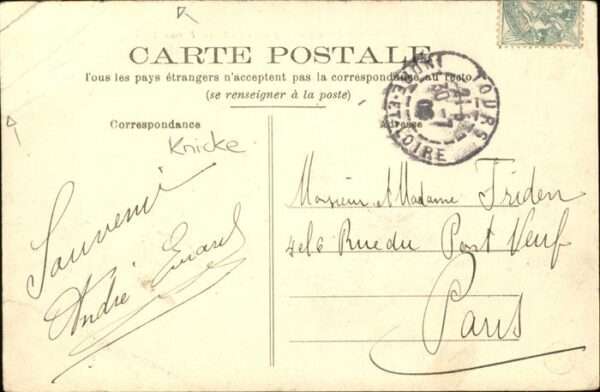 CARTE POSTALE
Tous les pays étrangers n'acceptent pas la correspondance au recto.
(se renseigner à la poste)
TOURS
INDRE-ET-LOIRE
Correspondance
Adresse
Knicke
Souvenir
André
Monsieur & Madame Friden
4 & 6 Rue du Pont Neuf
Paris